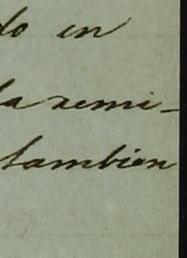 do en
la remi-
tambien